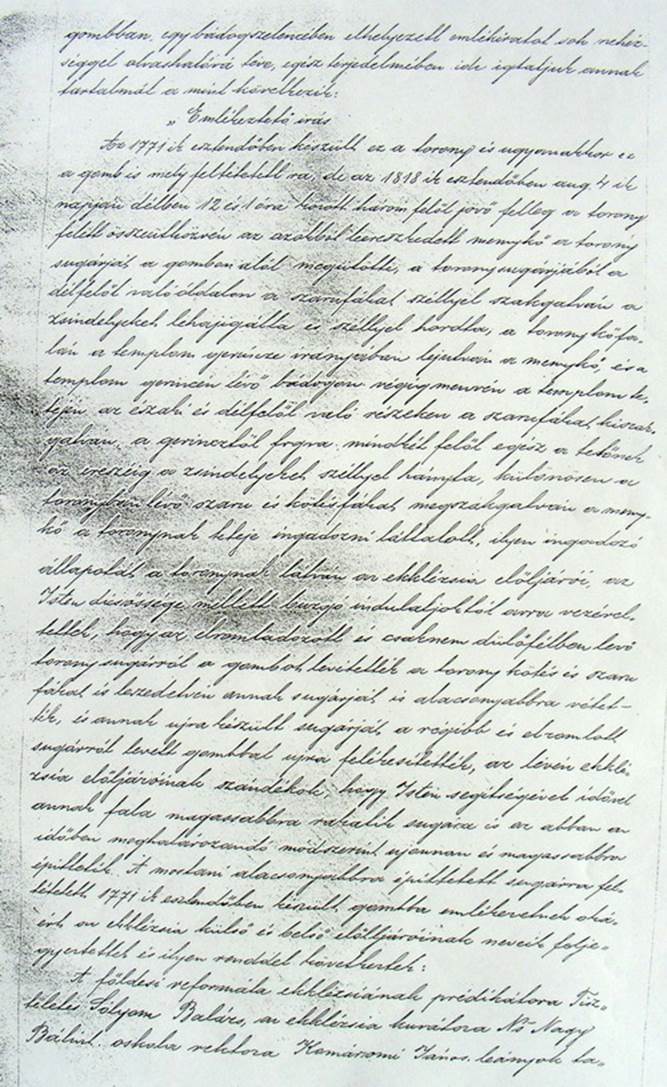 gombban, egy bádogszelencében elhelyezett emlékiratot sok nehéz-
séggel olvashatóvá téve, egész terjedelmében ide igtatjuk annak
tartalmát a mint következik:
„ Emlékeztető irás
Az 1771 ik esztendőben készült ez a torony és ugyanakkor ez
a gomb is mely feltétetett rá, de az 1818 ik esztendőben aug. 4 ik
napján délben 12 és 1 óra között három felől jövő felleg a torony
felett összeütközvén az azokból leereszkedett menykő a torony
sugárját a gombon alól megütötte, a torony sugárjából a
délfelől való oldalon a szarufákat széllyel szakgatván a
zsindelyeket lehajigálta és széllyel hordta, a torony kőfa-
lán a templom gerincze irányában lejutván a menykő, és a
templom gerinczén lévő bádogon végig menvén a templom te-
tején az északi és délfelől való részeken a szarufákat kiszak-
gatván, a gerincztől fogva mindkét felől egész a tetőnek
az ereszéig a zsindelyeket széllyel hányta, különösen a
toronyban lévő szaru és kötésfákat megszakgatván a meny-
kő a toronynak teteje ingadozni láttatott, ilyen ingadozó
állapotát a toronynak látván az ekklézsia előljárói, az
Isten dicsőssége mellett buzgó indulatjoktól arra vezérel-
tettek, hogy az elromladozott és csaknem dülőfélben levő
torony sugárról a gombot levétették a torony kötés és szaru
fákat is leszedetvén annak sugárját is alacsonyabbra vétet-
ték, és annak ujra készült sugárját a régibb és elromlott
sugárról levett gombbal ujra felékesítették, az lévén ekklé-
zsia előljáróinak szándékok, hogy Isten segítségével idővel
annak fala magassabbra rakatik sugára is az abban az
időben meghatározandó módszerint ujonnan és magassabbra
építtetik. A mostani alacsonyabbra építtetett sugárra fel-
tétetett 1771 ik esztendőben készült gombba emlékezetnek oká-
ért az ekklézsia külső és belső előljáróinak neveik felje-
gyeztettek és ilyen renddel következtek:
A földesi reformáta ekklézsiának prédikátora Tisz-
teletes Sólyom Balázs, az ekklézsia kurátora Ns Nagy
Bálint oskola rektora Komáromi János leányok ta-